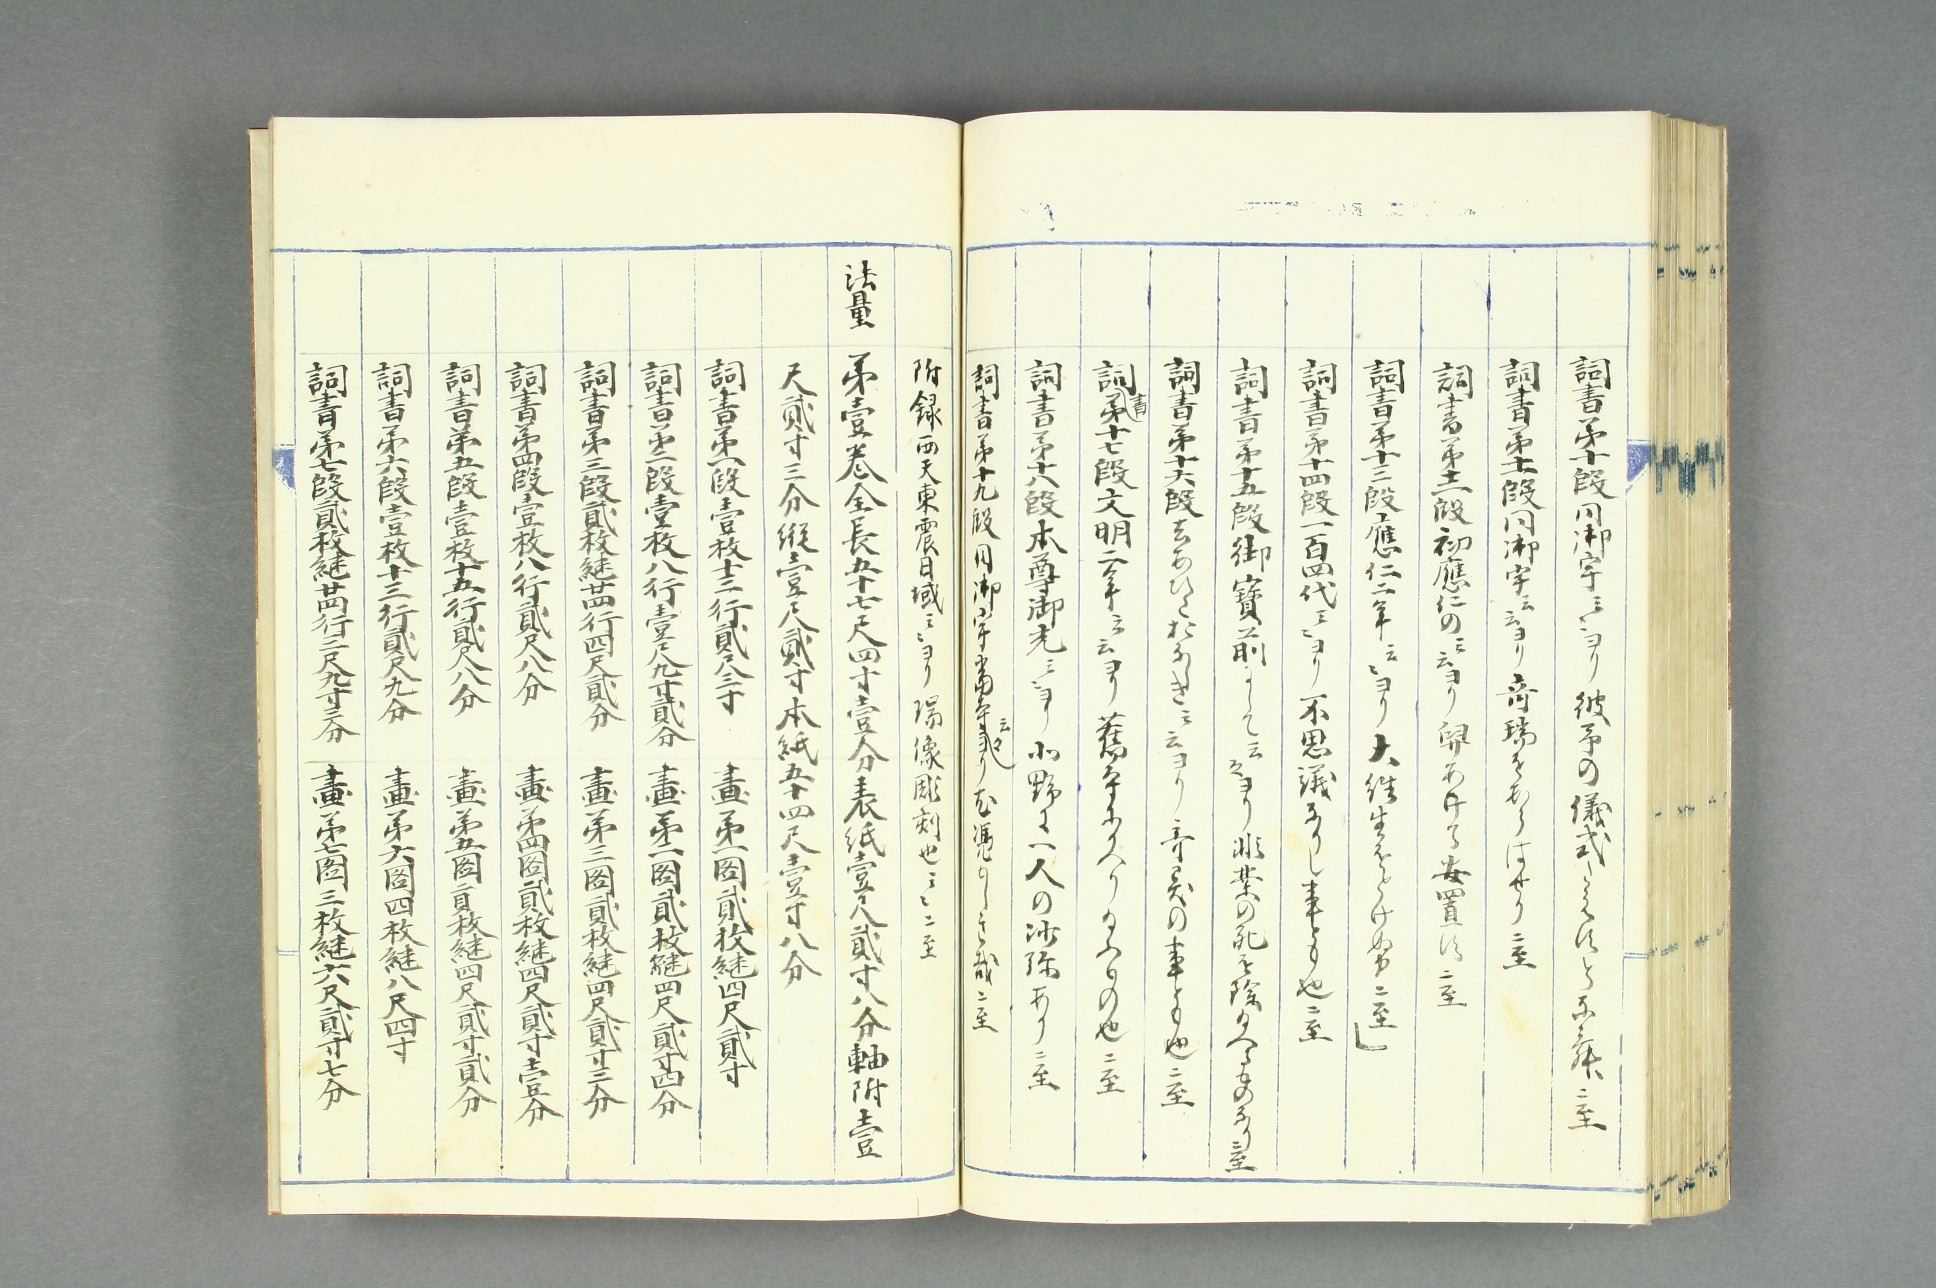 詞書第十段同御宇云々ヨリ彼寺の儀式二至
詞書第十一段同御宇云々ヨリ奇瑞をあらはせり二至
詞書第十二段初應仁の云々ヨリ安置す二至
詞書第十三段應仁二年云々ヨリ大往生をとけぬ二至
詞書第十四段一百四代云々ヨリ不思議なりし事とも也二至
詞書第十五段御寶前にして云々ヨリ非業の死を除給へるものなり二至
詞書第十六段云々ヨリの事とも也二至
詞書第十七段文明二年云々ヨリ舊寺にかへり給へるもの也二至
詞書第十八段本尊御光云々ヨリ小野に一人の沙弥あり二至
詞書第十九段同御宇當寺云々ヨリ二至
附録西天東震日域云々ヨリ瑞像彫刻也云々二至
法量 第壹巻全長五十七尺四寸壹分表紙壹尺貳寸八分軸附壹
尺貳寸三分縦壹尺貳寸本紙五十四尺壹寸八分
詞書第一段壹枚十二行貳尺三寸 畫第一圖貳枚継四尺貳寸
詞書第二段壹枚八行壹尺九寸貳分 畫第二圖貳枚継四尺貳寸四分
詞書第三段貳枚継廿四行四尺貳分 畫第三圖貳枚継四尺貳寸三分
詞書第四段壹枚八行貳尺八分 畫第四圖貳枚継四尺貳寸壹分
詞書第五段壹枚十五行貳尺八分 畫第五圖貳枚継四尺貳寸貳分
詞書第六段壹枚十三行貳尺九分 畫第六圖四枚継八尺四寸
詞書第七段貳枚継廿四行三尺九寸三分 畫第七圖三枚継六尺貳寸七分